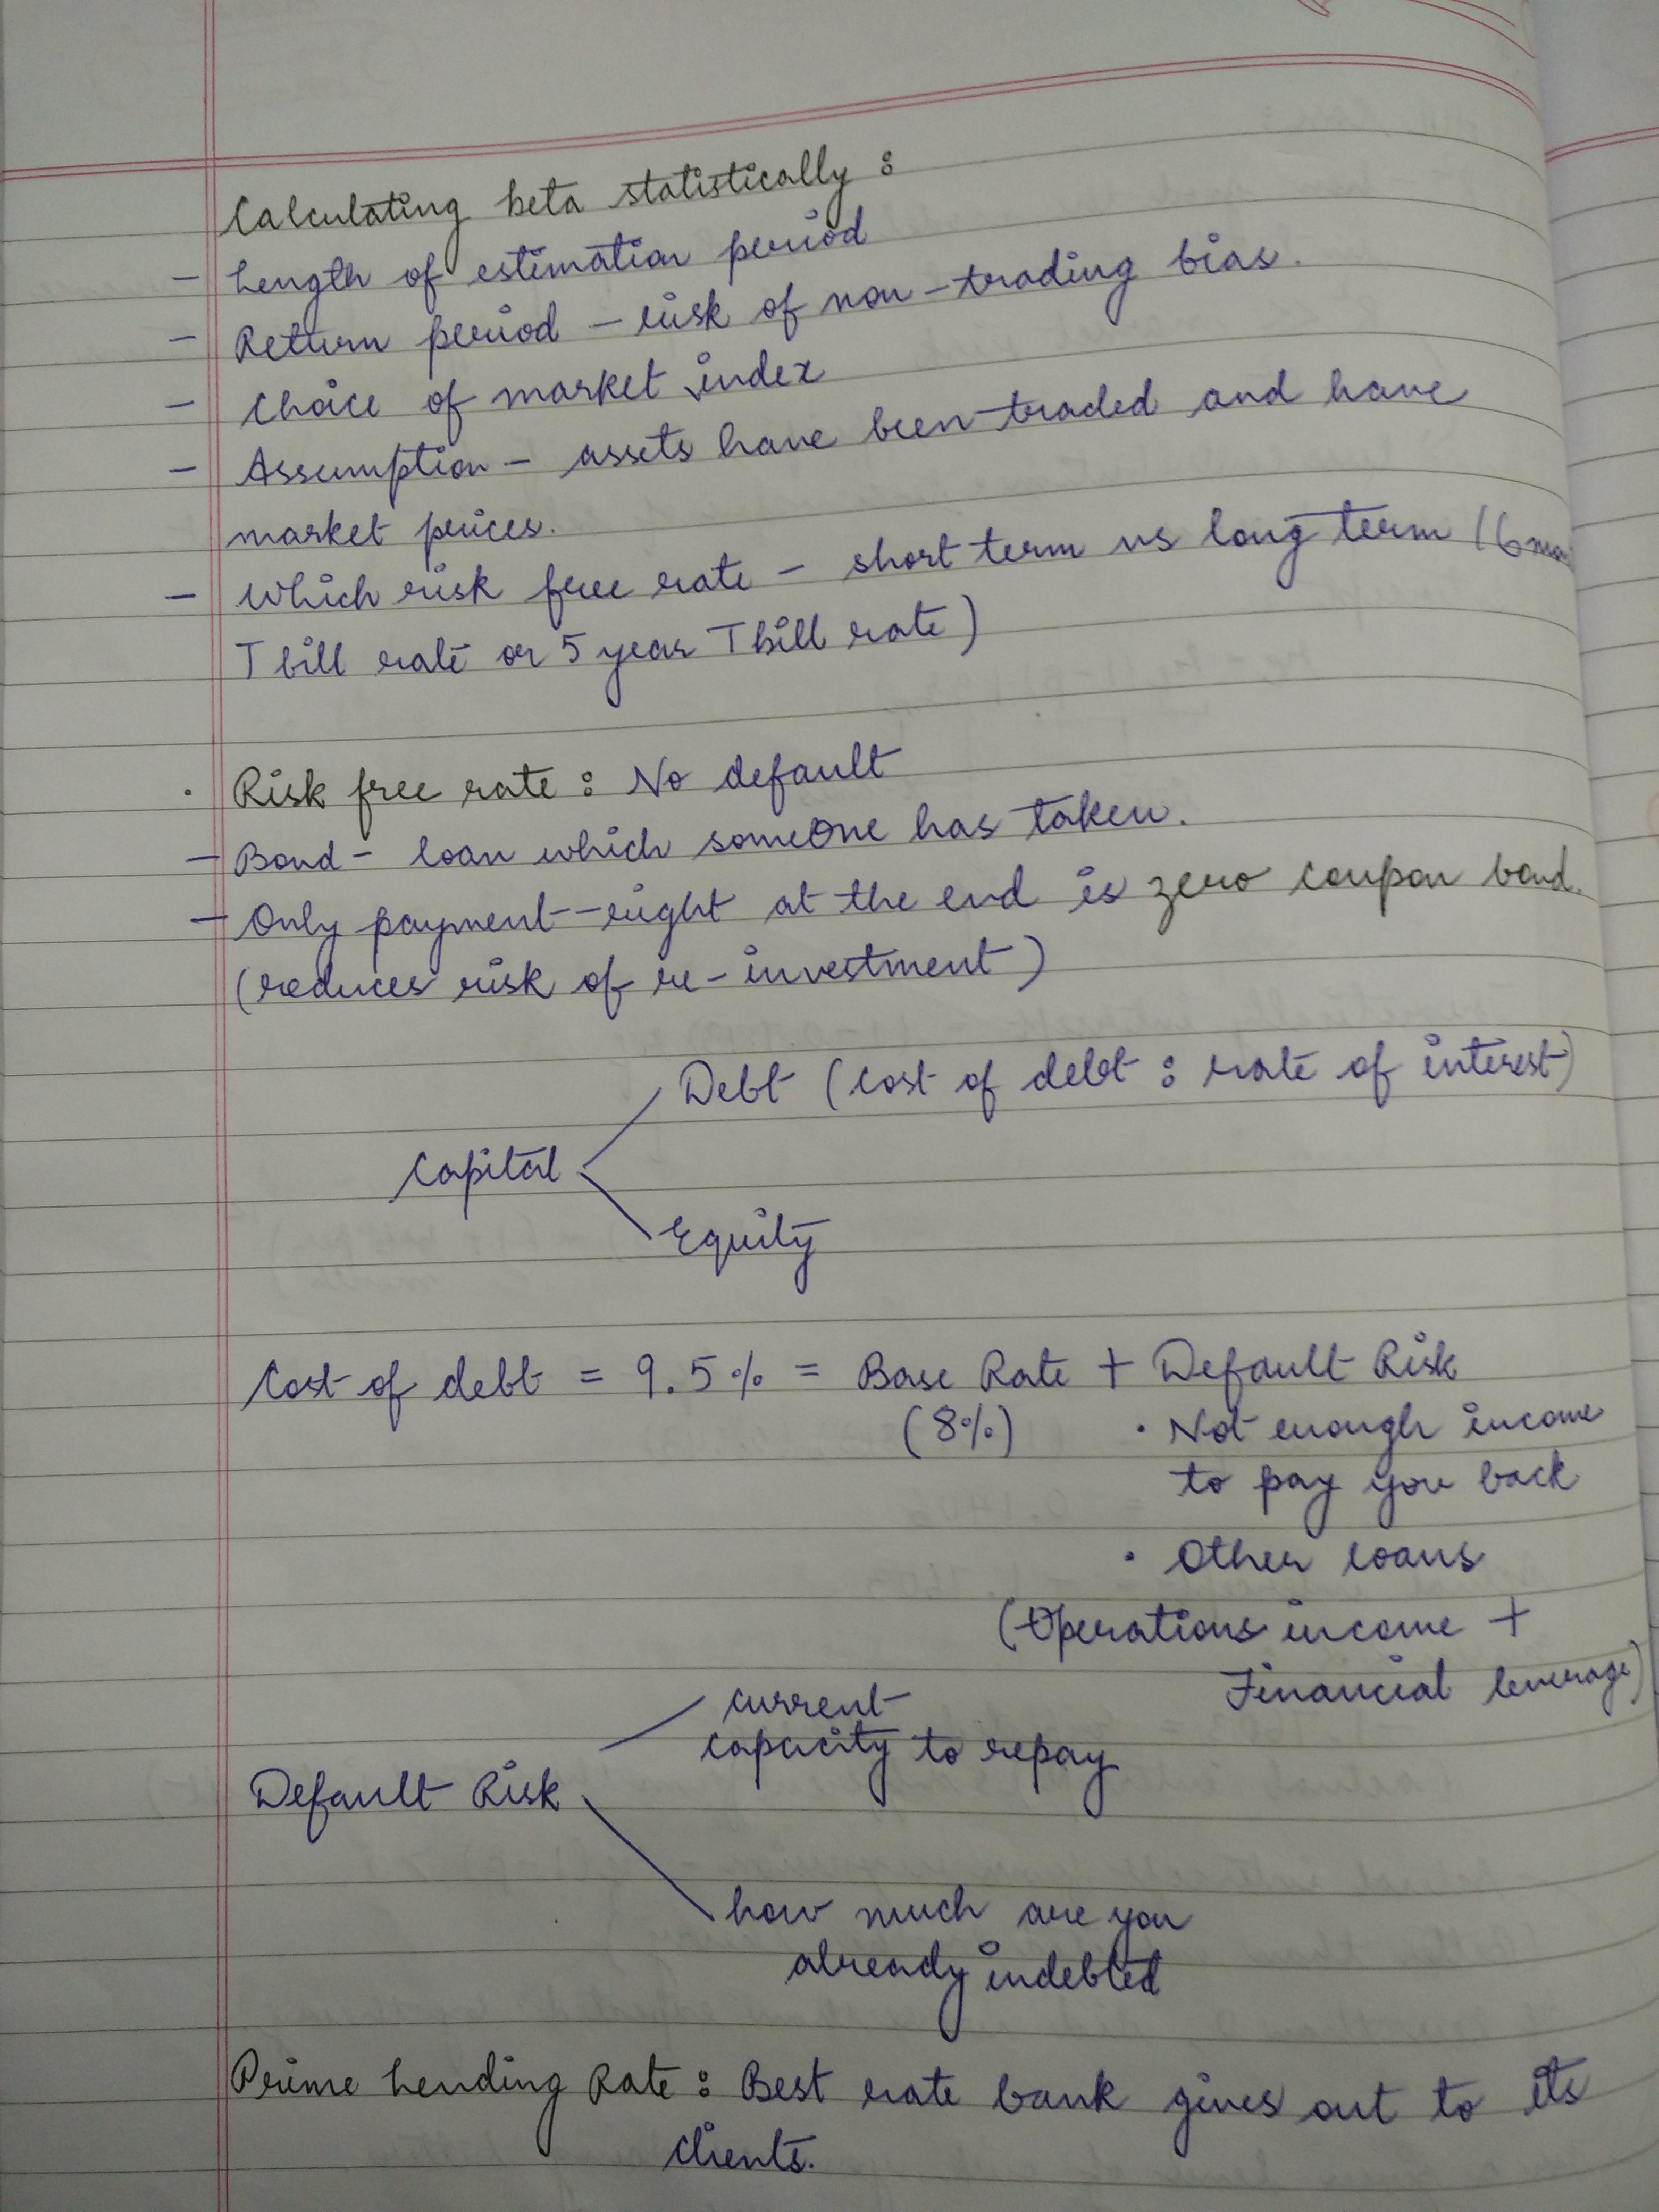 Calculating beta statistically :
- Length of estimation period
- Return period - risk of non-trading bias.
- Choice of market index
- Assumption - assets have been traded and have
market prices.
- Which risk free rate - short term vs long term (6
T bill rate or 5 year T bill rate)
· Risk free rate : No default
- Bond - loan which someone has taken.
- Only payment - right at the end is zero coupon bond.
(reduces risk of re-investment)
Debt (cost of debt : rate of interest)
Capital
Equity
Cost of debt = 9.5% = Base Rate + Default Risk
(8%) · Not enough income
to pay you back
· Other loans
(Operations income +
Financial leverage)
current
capacity to repay
Default Risk
how much are you
already indebted
Prime Lending Rate : Best rate bank gives out to its
clients.